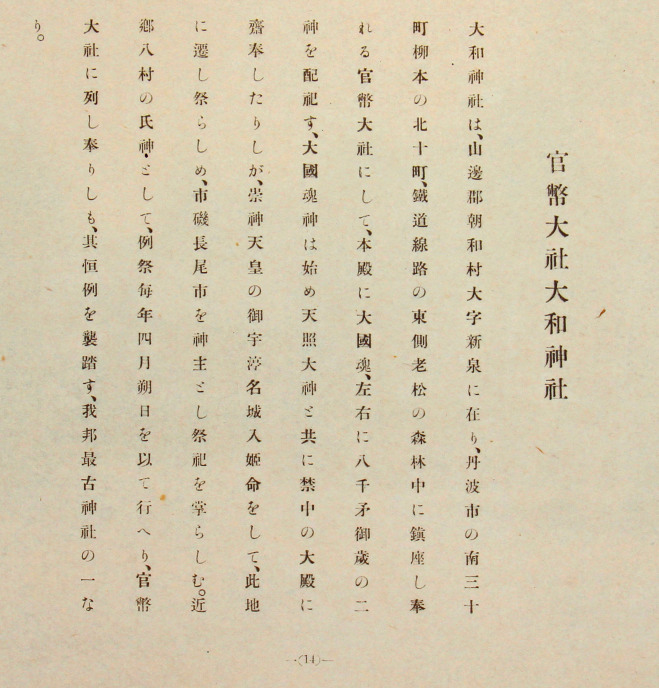 官幣大社大和神社
大和神社は、山邊郡朝和村大字新泉に在り、丹波市の南三十
町柳本の北十町、鐵道線路の東側老松の森林中に鎭座し奉
れる官幣大社にして、本殿に大國魂、左右に八千矛御歳の二
神を配祀す、大國魂神は始め天照大神と共に禁中の大殿に
齋奉したりしが、崇神天皇の御宇渟名城入姬命をして、此地
に遷し祭らしめ、市磯長尾市を神主とし祭祀を掌らしむ。近
鄕八村の氏神として、例祭每年四月朔日を以て行へり、官幣
大社に列し奉りしも、其恒例を襲踏す、我邦最古神社の一な
り。
—(14)—